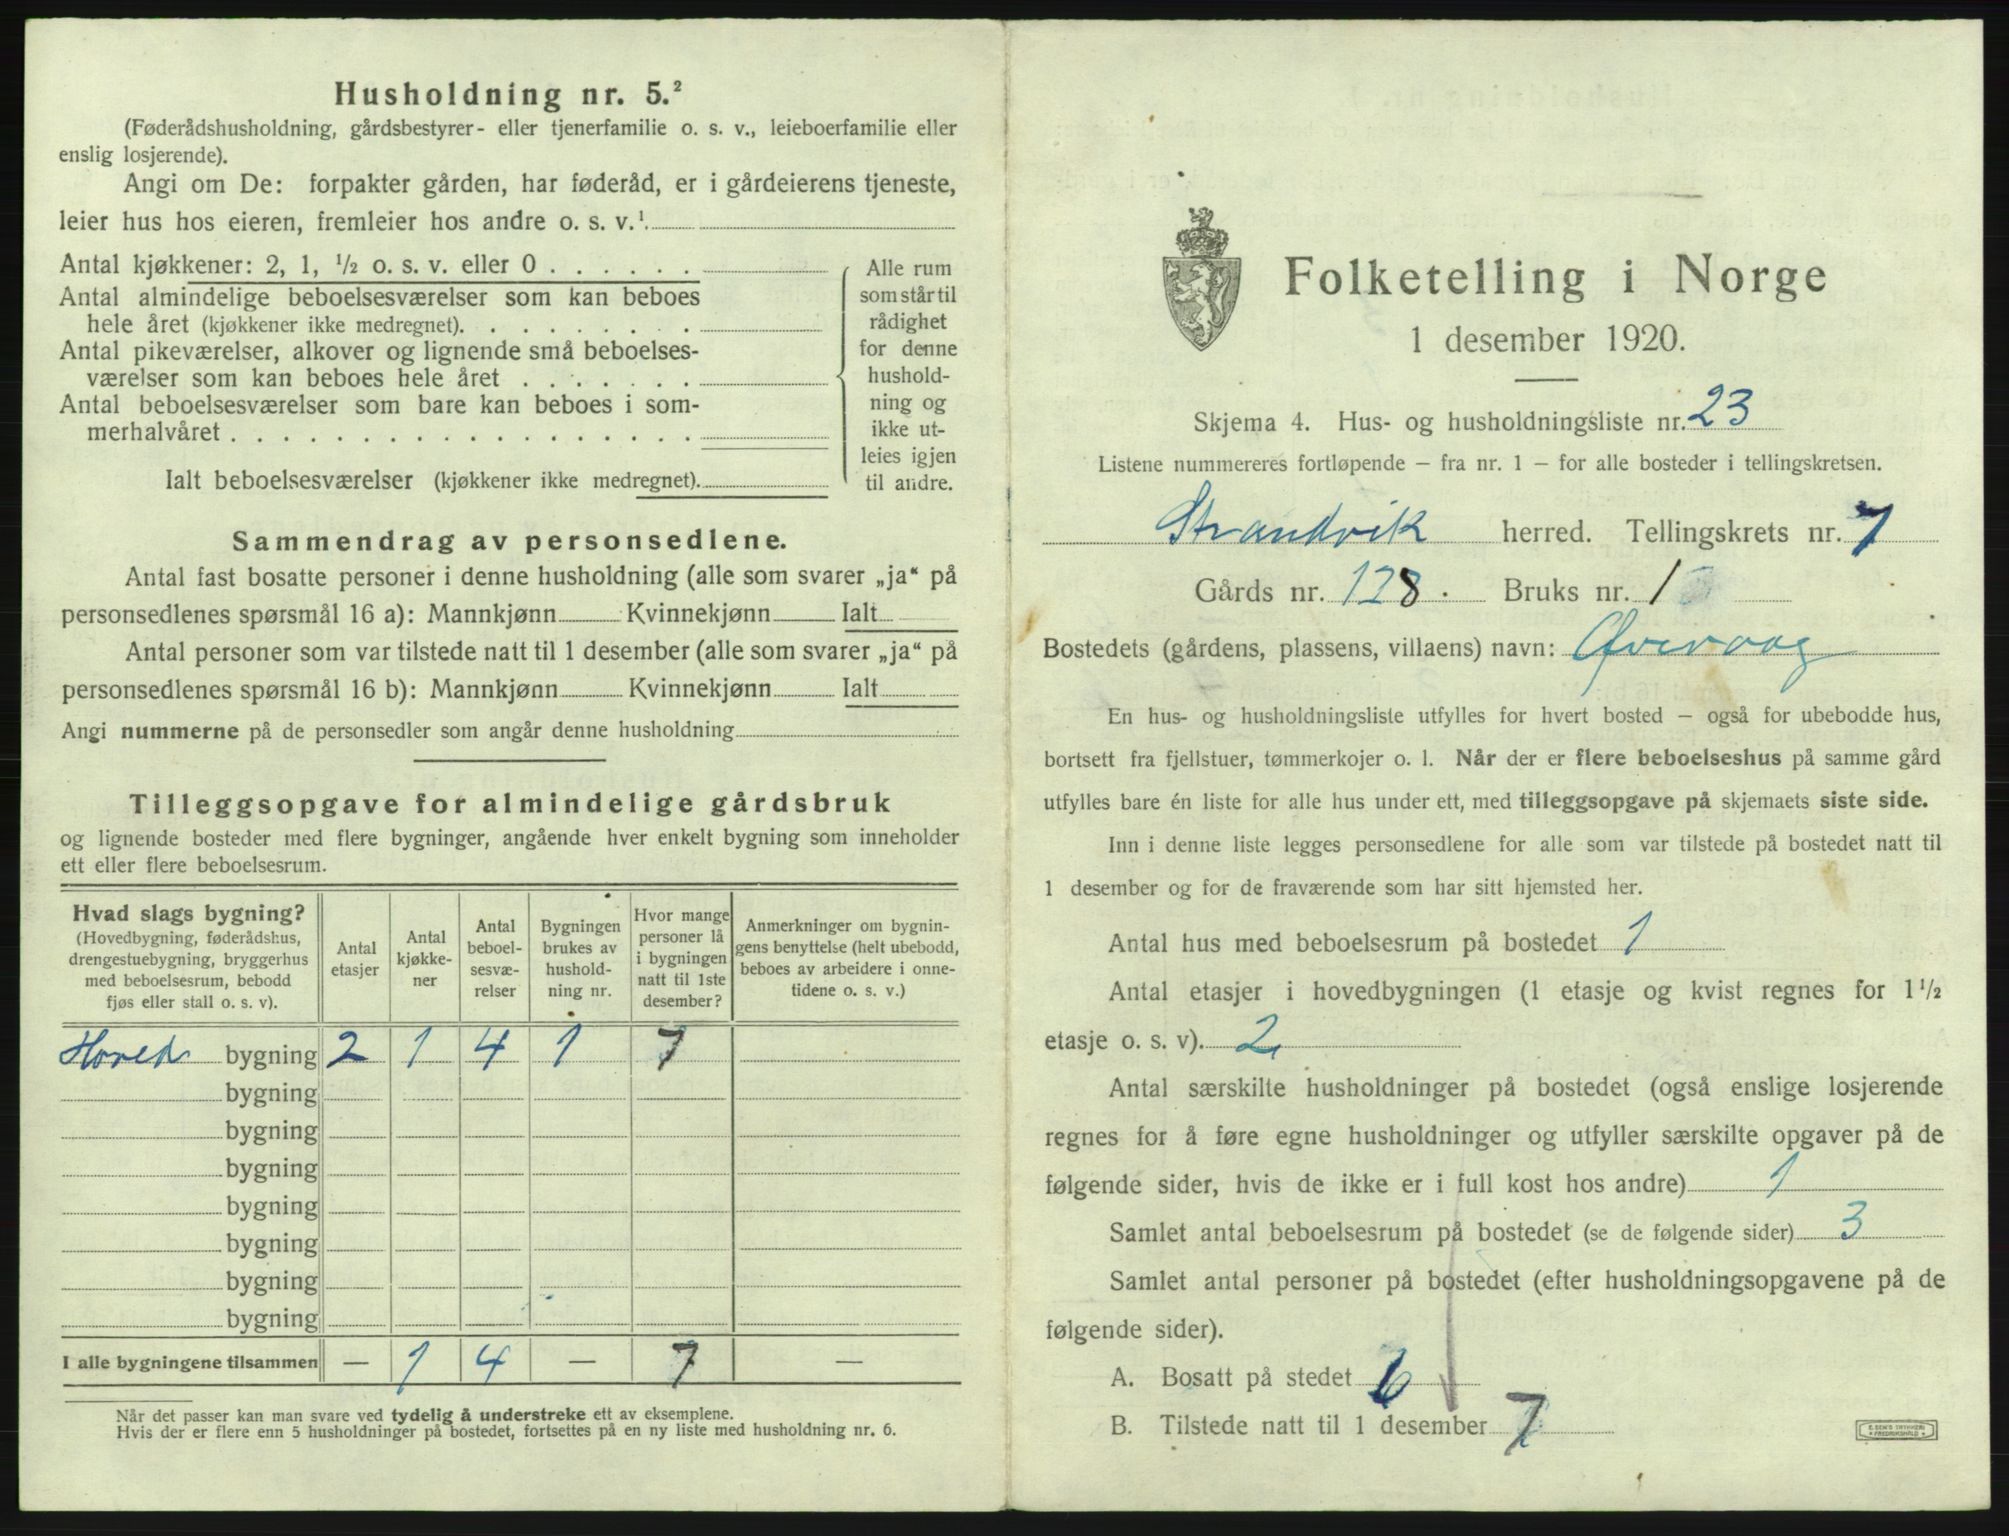 Husholdning nr. 5.²
(Føderådshusholdning, gårdsbestyrer- eller tjenerfamilie o. s. v., leieboerfamilie eller
enslig losjerende).
Angi om De: forpakter gården, har føderåd, er i gårdeierens tjeneste,
leier hus hos eieren, fremleier hos andre o. s. v.¹
Antal kjøkkener: 2, 1, ½ o. s. v. eller 0 . . . . . .
Antal almindelige beboelsesværelser som kan beboes
hele året (kjøkkener ikke medregnet). . . . . . . . .
Antal pikeværelser, alkover og lignende små beboelses-
værelser som kan beboes hele året . . . . . . .
Antal beboelsesværelser som bare kan beboes i som-
merhalvåret . . . . . . . . . . . . . . . . . .
Ialt beboelsesværelser (kjøkkener ikke medregnet).
Alle rum
som står til
rådighet
for denne
hushold-
ning og
ikke ut-
leies igjen
til andre.
Sammendrag av personsedlene.
Antal fast bosatte personer i denne husholdning (alle som svarer „ja“ på
personsedlenes spørsmål 16 a): Mannkjønn Kvinnekjønn Ialt
Antal personer som var tilstede natt til 1 desember (alle som svarer „ja“ på
personsedlenes spørsmål 16 b): Mannkjønn Kvinnekjønn Ialt
Angi nummerne på de personsedler som angår denne husholdning
Tilleggsopgave for almindelige gårdsbruk
og lignende bosteder med flere bygninger, angående hver enkelt bygning som inneholder
ett eller flere beboelsesrum.
Hvad slags bygning?
(Hovedbygning, føderådshus,
drengestuebygning, bryggerhus
med beboelsesrum, bebodd
fjøs eller stall o. s. v).
Antal
etasjer
Antal
kjøkke-
ner
Antal
beboel-
sesvæ-
relser
Bygningen
brukes av
hushold-
ning nr.
Hvor mange
personer lå
i bygningen
natt til 1ste
desember?
Anmerkninger om bygnin-
gens benyttelse (helt ubebodd,
beboes av arbeidere i onne-
tidene o. s. v.)
Hoved bygning 2 1 4 1 7
bygning
bygning
bygning
bygning
bygning
bygning
bygning
I alle bygningene tilsammen — 1 4 — 7 —
Når det passer kan man svare ved tydelig å understreke ett av eksemplene.
Hvis der er flere enn 5 husholdninger på bostedet, fortsettes på en ny liste med husholdning nr. 6.
Folketelling i Norge
1 desember 1920.
Skjema 4. Hus- og husholdningsliste nr. 23
Listene nummereres fortløpende — fra nr. 1 — for alle bosteder i tellingskretsen.
Strandvik herred. Tellingskrets nr. 7
Gårds nr. 128. Bruks nr. 1
Bostedets (gårdens, plassens, villaens) navn: Øvrevaag
En hus- og husholdningsliste utfylles for hvert bosted — også for ubebodde hus,
bortsett fra fjellstuer, tømmerkojer o. l. Når der er flere beboelseshus på samme gård
utfylles bare én liste for alle hus under ett, med tilleggsopgave på skjemaets siste side.
Inn i denne liste legges personsedlene for alle som var tilstede på bostedet natt til
1 desember og for de fraværende som har sitt hjemsted her.
Antal hus med beboelsesrum på bostedet 1
Antal etasjer i hovedbygningen (1 etasje og kvist regnes for 1½
etasje o. s. v). 2
Antal særskilte husholdninger på bostedet (også enslige losjerende
regnes for å føre egne husholdninger og utfyller særskilte opgaver på de
følgende sider, hvis de ikke er i full kost hos andre) 1
Samlet antal beboelsesrum på bostedet (se de følgende sider) 3
Samlet antal personer på bostedet (efter husholdningsopgavene på de
følgende sider).
A. Bosatt på stedet 6
B. Tilstede natt til 1 desember 7